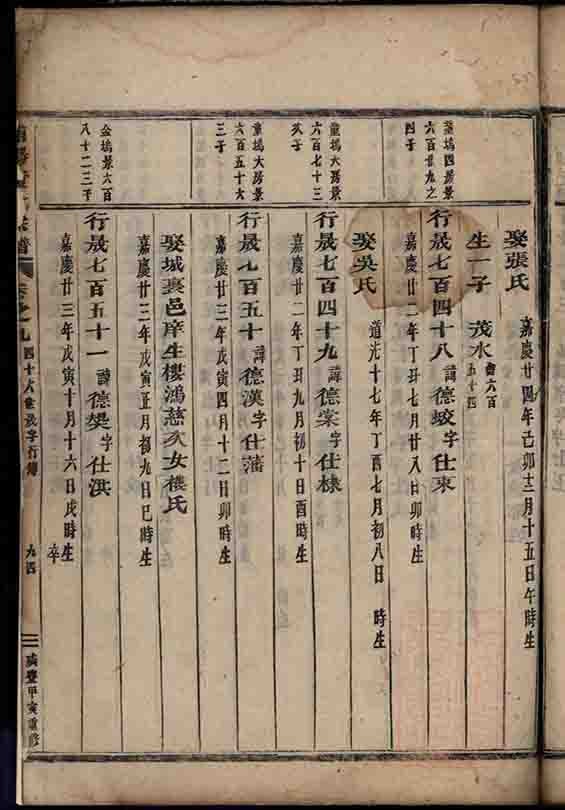 娶張氏 嘉慶廿四年己卯十二月十五日午時生
生一子 茂水 會六百五十四
葉塢四房景六百廿九之四子
行晟七百四十八 諱德峧字仕束
嘉慶廿二年丁丑七月廿八日卯時生
娶吳氏 道光十七年丁酉七月初八日 時生
葉塢大房景六百七十三次子
行晟七百四十九 諱德寀字仕棣
嘉慶廿二年丁丑九月初十日酉時生
葉塢大房景六百五十六三子
行晟七百五十 諱德漢字仕藩
嘉慶廿三年戊寅四月十二日卯時生
娶城裏邑庠生樓鴻慈次女樓氏
嘉慶廿三年戊寅正月初九日巳時生
金塢景六百八十二三子
行晟七百五十一 諱德樊字仕洪
嘉慶廿三年戊寅十月十六日戌時生卒
氏宗譜 卷之九 四十六世晟字行傳 九四 咸豐甲寅重修